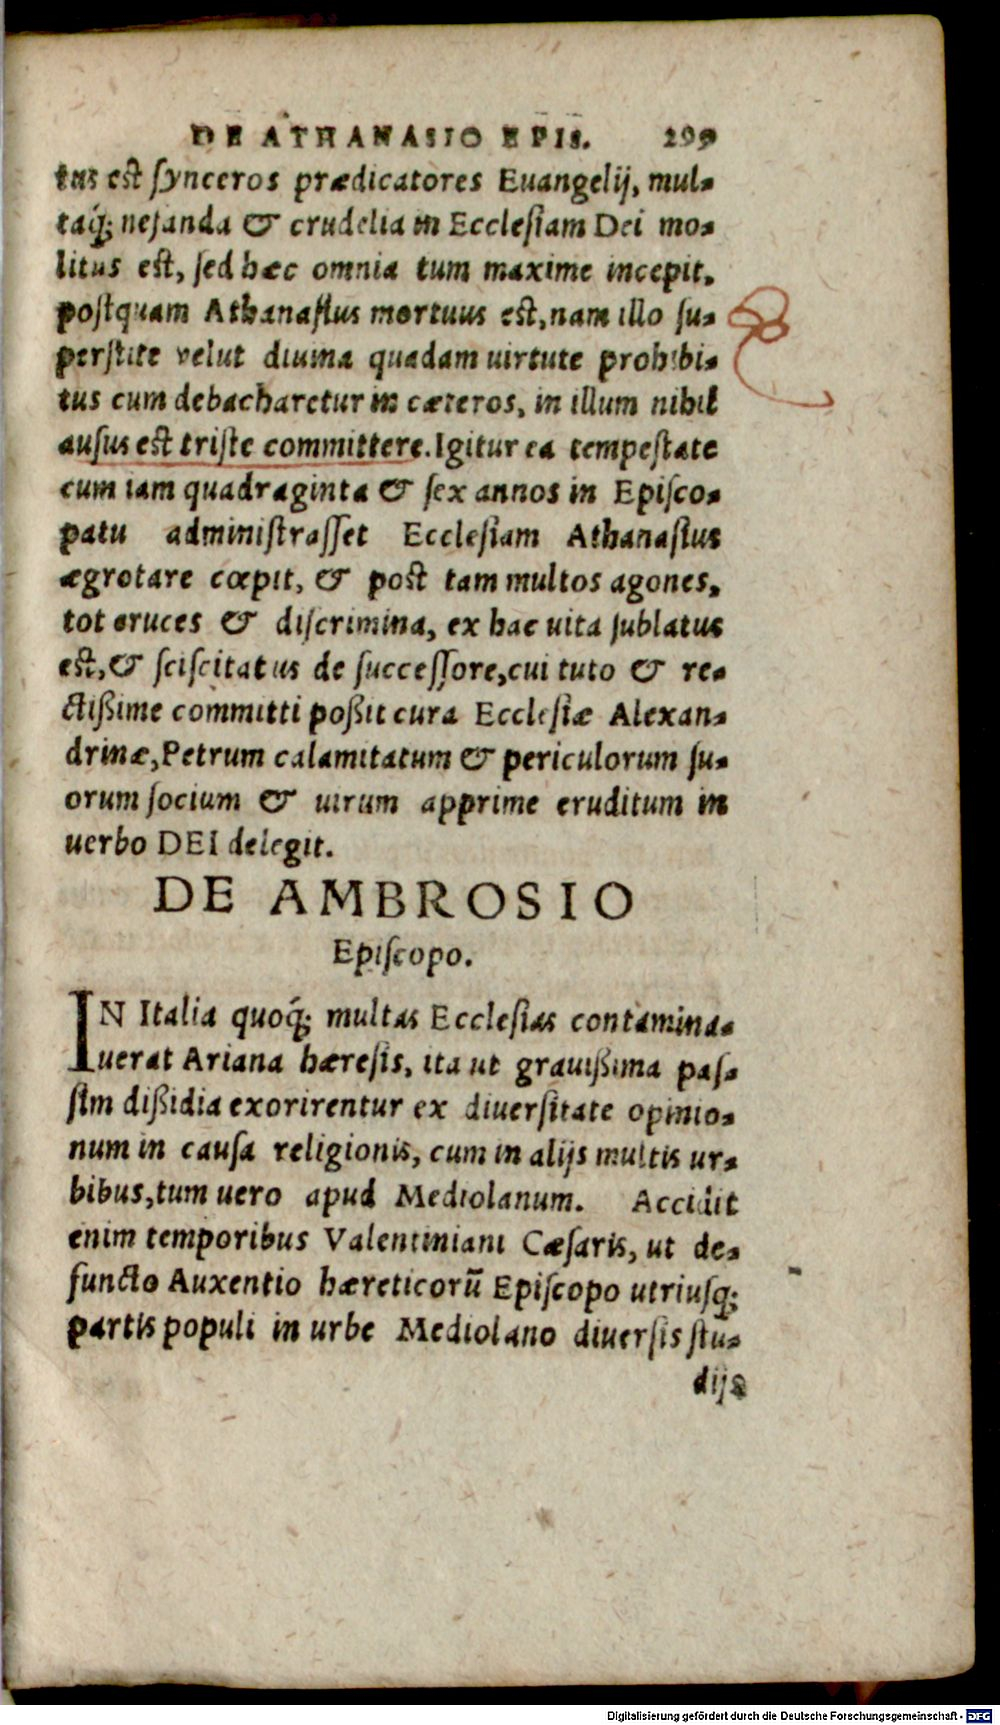 DE ATHANASIO EPIS. 299
tus est synceros prædicatores Euangelij, mul-
taq́; nefanda & crudelia in Ecclesiam Dei mo-
litus est, sed hæc omnia tum maxime incepit,
postquam Athanasius mortuus est, nam illo su-
perstite velut diuina quadam uirtute prohibi-
tus cum debacharetur in cæteros, in illum nihil
ausus est triste committere. Igitur ea tempestate
cum iam quadraginta & sex annos in Episco-
patu administrasset Ecclesiam Athanasius
ægrotare cœpit, & post tam multos agones,
tot cruces & discrimina, ex hac uita sublatus
est, & sciscitatus de successore, cui tuto & re-
ctißime committi poßit cura Ecclesiæ Alexan-
drinæ, Petrum calamitatum & periculorum su-
orum socium & uirum apprime eruditum in
uerbo DEI delegit.
DE AMBROSIO
Episcopo.
IN Italia quoq́; multas Ecclesias contamina-
uerat Ariana hæresis, ita ut grauißima pas-
sim dißidia exorirentur ex diuersitate opinio-
num in causa religionis, cum in alijs multis ur-
bibus, tum uero apud Mediolanum. Accidit
enim temporibus Valentiniani Cæsaris, ut de-
functo Auxentio hæreticorũ Episcopo utriusq;
partis populi in urbe Mediolano diuersis stu-
dijs
Digitalisierung gefördert durch die Deutsche Forschungsgemeinschaft - DFG